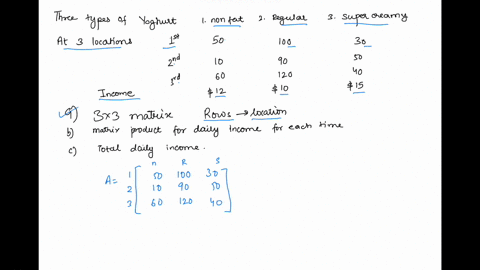 Three types of Yoghurt 1. non fat 2. Regular 3. Super creamy
At 3 locations 1st 50 100 30
2nd 10 90 50
3rd 60 120 40
Income $12 $10 $15
a) 3x3 matrix Rows → location
b) matrix product for daily income for each time
c) Total daily income.
n R S
A= 1 50 100 30
2 10 90 50
3 60 120 40